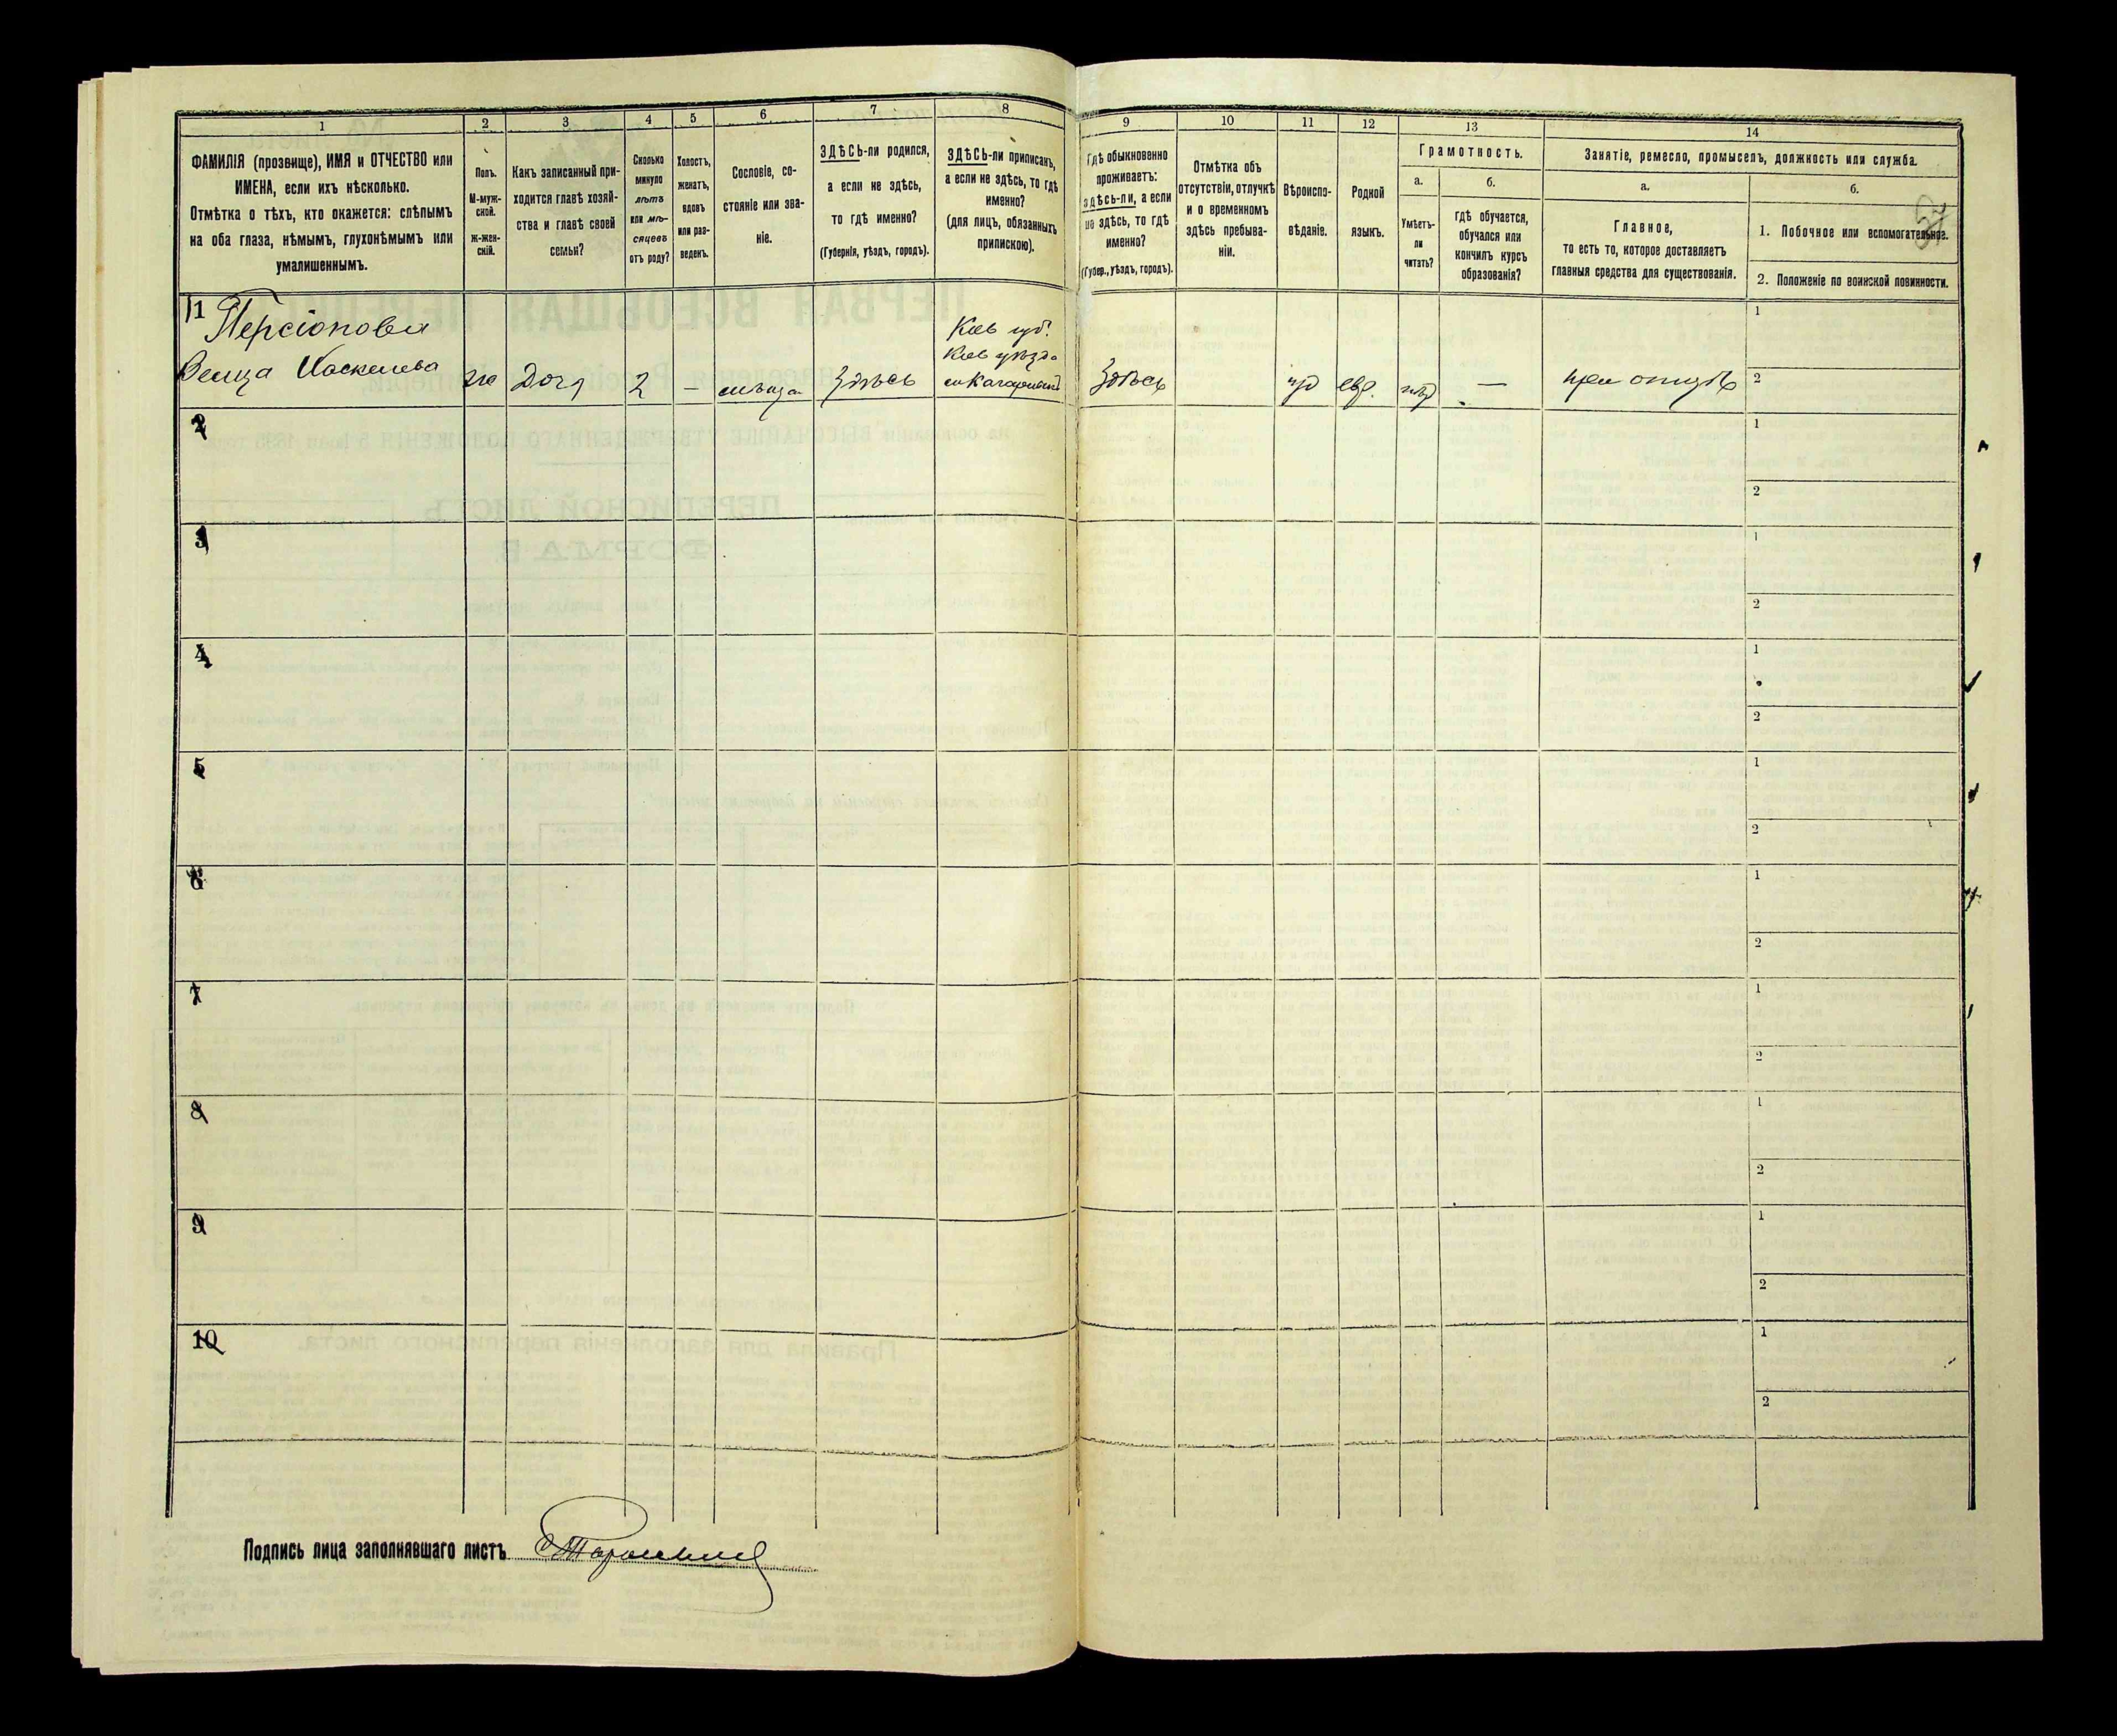 1
ФАМИЛІЯ (прозвище), ИМЯ и ОТЧЕСТВО или
ИМЕНА, если ихъ нѣсколько.
Отмѣтка о тѣхъ, кто окажется: слѣпымъ
на оба глаза, нѣмымъ, глухонѣмымъ или
умалишеннымъ.
2
Полъ.
М-муж-
ской.
ж-жен-
скій.
3
Какъ записанный при-
ходится главѣ хозяй-
ства и главѣ своей
семьи?
4
Сколько
минуло
лѣтъ
или мѣ-
сяцевъ
отъ роду?
5
Холостъ,
женатъ,
вдовъ
или раз-
веденъ.
6
Сословіе, со-
стояніе или зва-
ніе.
7
ЗДѢСЬ-ли родился,
а если не здѣсь,
то гдѣ именно?
(Губернія, уѣздъ, городъ).
8
ЗДѢСЬ-ли приписанъ,
а если не здѣсь, то гдѣ
именно?
(для лицъ, обязанныхъ
припискою).
9
Гдѣ обыкновенно
проживаетъ:
здѣсь-ли, а если
не здѣсь, то гдѣ
именно?
(Губер., уѣздъ, городъ).
10
Отмѣтка объ
отсутствіи, отлучкѣ
и о временномъ
здѣсь пребыва-
ніи.
11
Вѣроиспо-
вѣданіе.
12
Родной
языкъ.
13
Грамотность.
а.
Умѣетъ-
ли
читать?
б.
гдѣ обучается,
обучался или
кончилъ курсъ
образованія?
14
Занятіе, ремесло, промыселъ, должность или служба.
а.
Главное,
то есть то, которое доставляетъ
главныя средства для существованія.
б.
1. Побочное или вспомогательное.
2. Положеніе по воинской повинности.
11
Дочь
2
—
Здѣсь
Кіев губ.
Кіев уѣзда
Здѣсь
іуд
евр.
нѣт
—
при отцѣ
1
2
2
1
2
3
1
2
4
1
2
5
1
2
6
1
2
7
1
2
8
1
2
9
1
2
10
1
2
Подпись лица заполнявшаго листъ